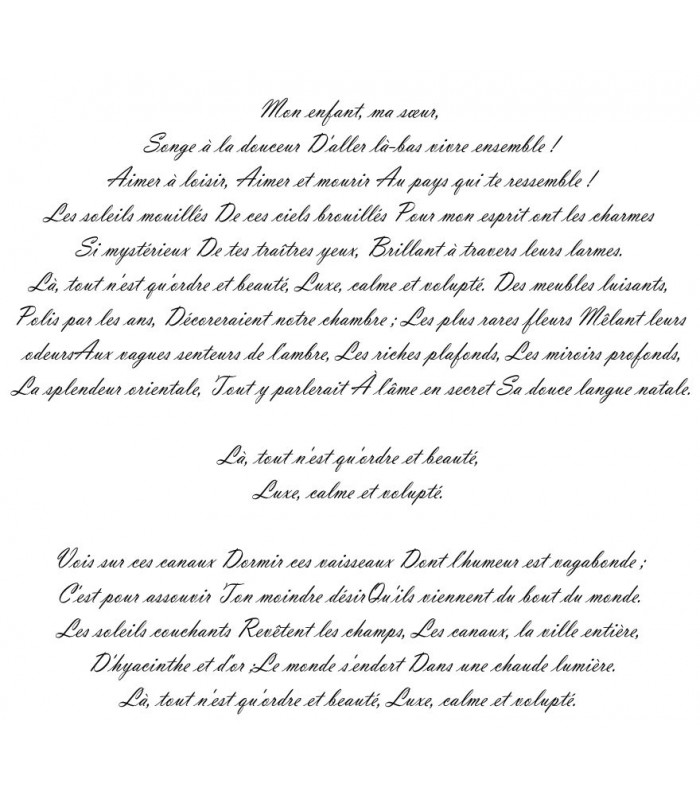 Mon enfant, ma sœur,
Songe à la douceur D'aller là-bas vivre ensemble !
Aimer à loisir, Aimer et mourir Au pays qui te ressemble !
Les soleils mouillés De ces ciels brouillés Pour mon esprit ont les charmes
Si mystérieux De tes traîtres yeux, Brillant à travers leurs larmes.
Là, tout n'est qu'ordre et beauté, Luxe, calme et volupté. Des meubles luisants,
Polis par les ans, Décoreraient notre chambre ; Les plus rares fleurs Mêlant leurs
odeursAux vagues senteurs de l'ambre, Les riches plafonds, Les miroirs profonds,
La splendeur orientale, Tout y parlerait À l'âme en secret Sa douce langue natale.
Là, tout n'est qu'ordre et beauté,
Luxe, calme et volupté.
Vois sur ces canaux Dormir ces vaisseaux Dont l'humeur est vagabonde ;
C'est pour assouvir Ton moindre désirQu'ils viennent du bout du monde.
Les soleils couchants Revêtent les champs, Les canaux, la ville entière,
D'hyacinthe et d'or ;Le monde s'endort Dans une chaude lumière.
Là, tout n'est qu'ordre et beauté, Luxe, calme et volupté.